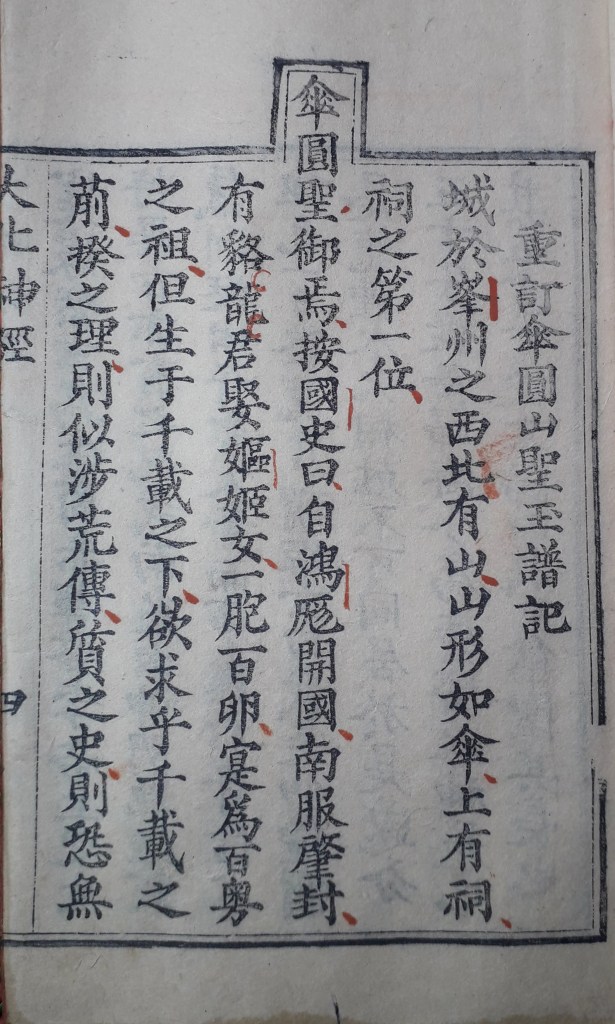 重訂傘圓山聖玉譜記
城於峯州之西北有山山形如傘上有祠
祠之第一位
傘圓聖御焉按國史曰自鴻厖開國南服肇封
有貉龍君娶嫗姬女一胞百卵寔爲百粵
之祖但生于千載之下欲求乎千載之
前揆之理則似涉荒傳質之史則恐無
神經
四